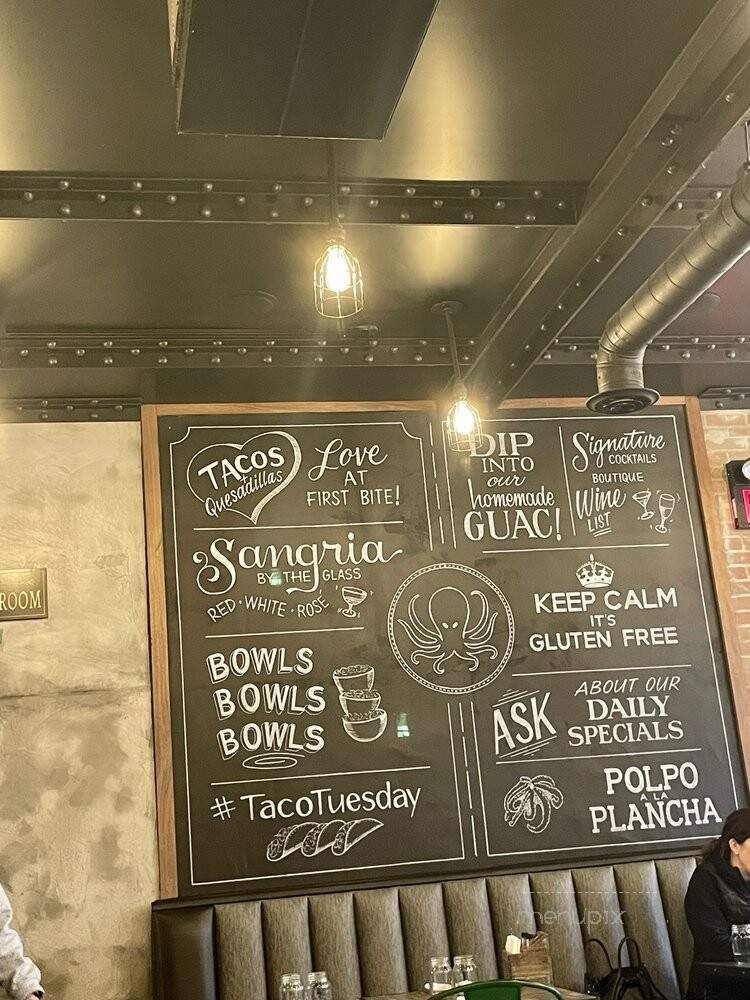 TACOS
& Quesadillas
Love
AT
FIRST BITE!
Sangria
BY THE GLASS
RED · WHITE · ROSÉ
BOWLS
BOWLS
BOWLS
# TacoTuesday
DIP
INTO
our
homemade
GUAC!
Signature
COCKTAILS
BOUTIQUE
Wine
LIST
KEEP CALM
IT'S
GLUTEN FREE
ASK
ABOUT OUR
DAILY
SPECIALS
POLPO
A LA
PLANCHA
ROOM
menupix